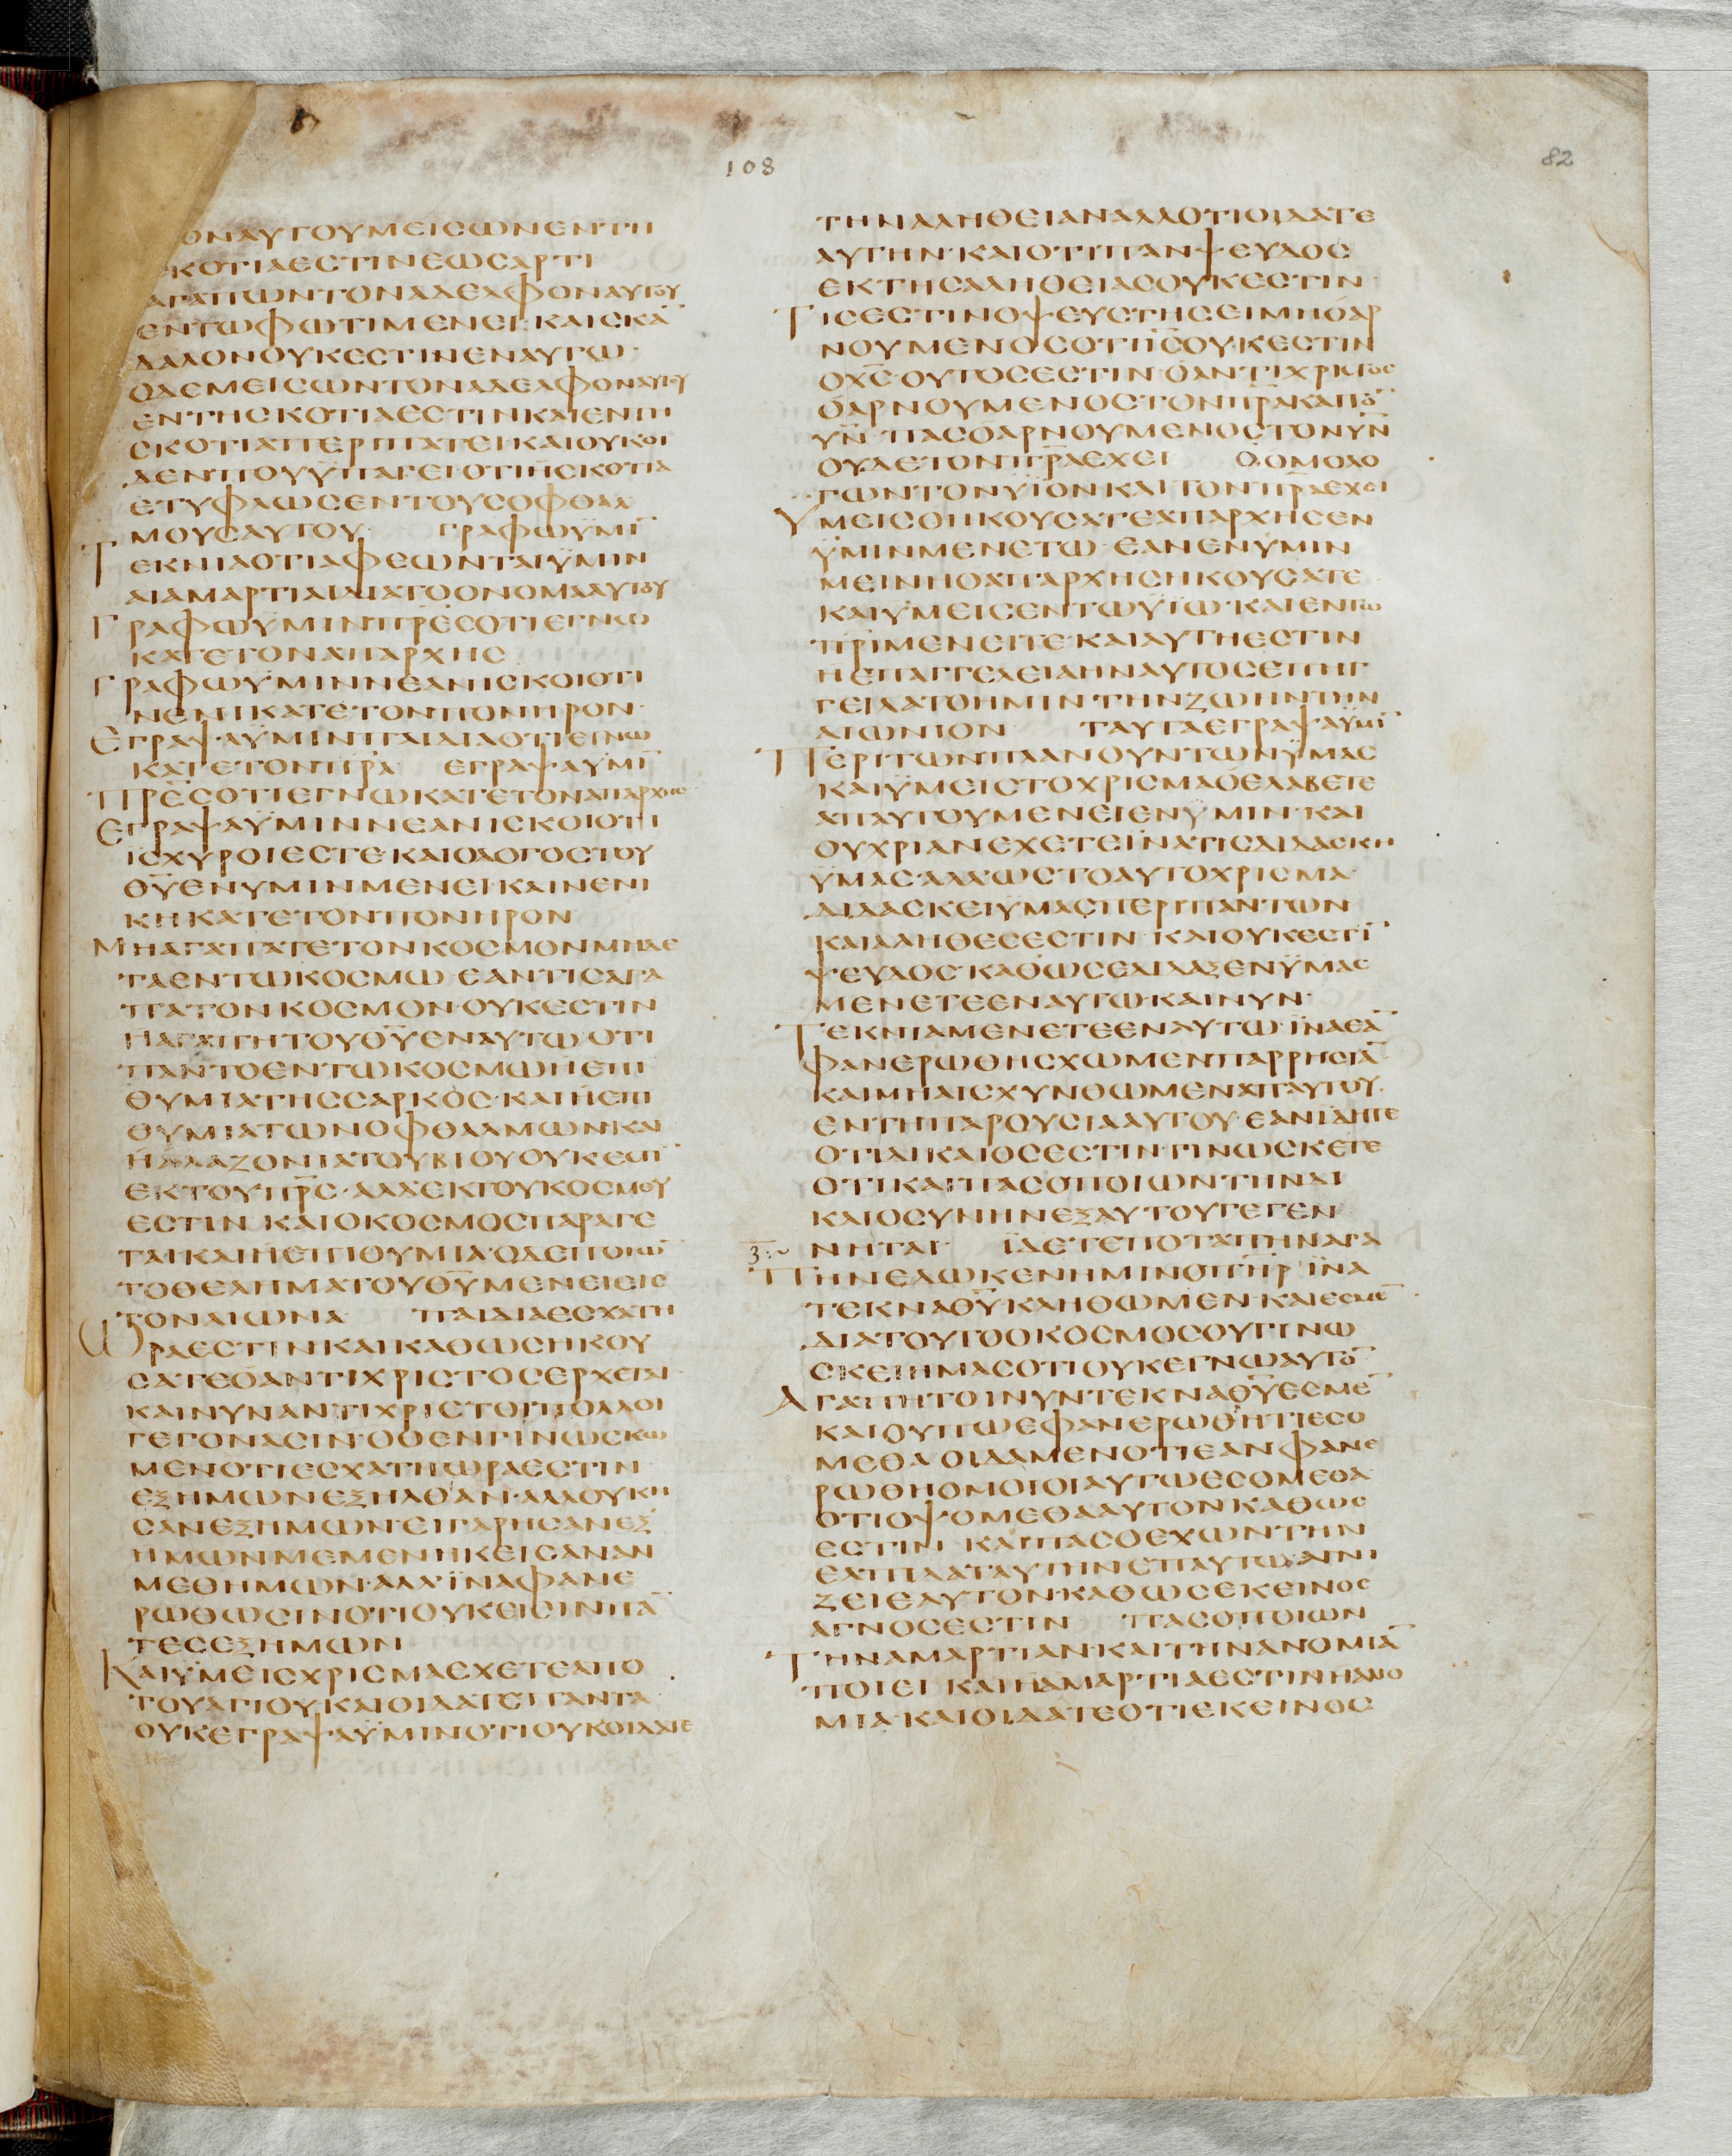 108
82
ΟΝΑΥΤΟΥΜΕΙΣΩΝΕΝΤΗ
ΚΟΤΙΑΕΣΤΙΝΕΩΣΑΡΤΙ
ΑΓΑΠΩΝΤΟΝΑΔΕΛΦΟΝΑΥΤΟΥ
ΕΝΤΩΦΩΤΙΜΕΝΕΙ·ΚΑΙΣΚΑ̅
ΔΑΛΟΝΟΥΚΕΣΤΙΝΕΝΑΥΤΩ·
ΟΔΕΜΕΙΣΩΝΤΟΝΑΔΕΛΦΟΝΑΥΤΟΥ
ΕΝΤΗΣΚΟΤΙΑΕΣΤΙΝΚΑΙΕΝΤΗ
ΣΚΟΤΙΑΠΕΡΙΠΑΤΕΙ·ΚΑΙΟΥΚΟΙ
ΔΕΝΠΟΥΫΠΑΓΕΙΟΤΙΗΣΚΟΤΙΑ
ΕΤΥΦΛΩΣΕΝΤΟΥΣΟΦΘΑΛ
ΜΟΥΣΑΥΤΟΥ· ΓΡΑΦΩΫΜΙ̅
ΤΕΚΝΙΑΟΤΙΑΦΕΩΝΤΑΙΫΜΙΝ
ΑΙΑΜΑΡΤΙΑΙΔΙΑΤΟΟΝΟΜΑΑΥΤΟΥ
ΓΡΑΦΩΫΜΙΝΠΡ̅Ε̅Σ̅ΟΤΙΕΓΝΩ
ΚΑΤΕΤΟΝΑΠΑΡΧΗΣ
ΓΡΑΦΩΫΜΙΝΝΕΑΝΙΣΚΟΙΟΤΙ
ΝΕΝΙΚΑΤΕΤΟΝΠΟΝΗΡΟΝ·
ΕΓΡΑΨΑΫΜΙΝΠΑΙΔΙΑΟΤΙΕΓΝΩ
ΚΑΤΕΤΟΝΠ̅Ρ̅Α̅ ΕΓΡΑΨΑΫΜΙ̅
Π̅Ρ̅Ε̅Σ̅ΟΤΙΕΓΝΩΚΑΤΕΤΟΝΑΠΑΡΧΗΣ
ΕΓΡΑΨΑΫΜΙΝΝΕΑΝΙΣΚΟΙΟΤΙ
ΙΣΧΥΡΟΙΕΣΤΕ·ΚΑΙΟΛΟΓΟΣΤΟΥ
Θ̅Υ̅ΕΝΥΜΙΝΜΕΝΕΙ·ΚΑΙΝΕΝΙ
ΚΗΚΑΤΕΤΟΝΠΟΝΗΡΟΝ
ΜΗΑΓΑΠΑΤΕΤΟΝΚΟΣΜΟΝΜΗΔΕ
ΤΑΕΝΤΩΚΟΣΜΩ·ΕΑΝΤΙΣΑΓΑ
ΠΑΤΟΝΚΟΣΜΟΝ·ΟΥΚΕΣΤΙΝ
ΗΑΓΑΠΗΤΟΥΘ̅Υ̅ΕΝΑΥΤΩ·ΟΤΙ
ΠΑΝΤΟΕΝΤΩΚΟΣΜΩΗΕΠΙ
ΘΥΜΙΑΤΗΣΣΑΡΚΟΣ·ΚΑΙΗΕΠΙ
ΘΥΜΙΑΤΩΝΟΦΘΑΛΜΩΝ·ΚΑΙ
ΗΑΛΑΖΟΝΙΑΤΟΥΒΙΟΥΟΥΚΕΣΤΙ̅
ΕΚΤΟΥΠ̅Ρ̅Σ̅·ΑΛΛΕΚΤΟΥΚΟΣΜΟΥ
ΕΣΤΙΝ ΚΑΙΟΚΟΣΜΟΣΠΑΡΑΓΕ
ΤΑΙ·ΚΑΙΗΕΠΙΘΥΜΙΑ·ΟΔΕΠΟΙΩ̅
ΤΟΘΕΛΗΜΑΤΟΥΘ̅Υ̅ΜΕΝΕΙΕΙΣ
ΤΟΝΑΙΩΝΑ· ΠΑΙΔΙΑΕΣΧΑΤΗ
ΩΡΑΕΣΤΙΝΚΑΙΚΑΘΩΣΗΚΟΥ
ΣΑΤΕΟΑΝΤΙΧΡΙΣΤΟΣΕΡΧΕΤΑΙ
ΚΑΙΝΥΝΑΝΤΙΧΡΙΣΤΟΙΠΟΛΛΟΙ
ΓΕΓΟΝΑΣΙΝ·ΟΘΕΝΓΙΝΩΣΚΩ
ΜΕΝΟΤΙΕΣΧΑΤΗΩΡΑΕΣΤΙΝ
ΕΞΗΜΩΝΕΞΗΛΘΑΝ·ΑΛΛΟΥΚΗ
ΣΑΝΕΞΗΜΩΝ·ΕΙΓΑΡΗΣΑΝΕΞ
ΗΜΩΝΜΕΜΕΝΗΚΕΙΣΑΝΑΝ
ΜΕΘΗΜΩΝ·ΑΛΛΪΝΑΦΑΝΕ
ΡΩΘΩΣΙΝΟΤΙΟΥΚΕΙΣΙΝΠΑ̅
ΤΕΣΕΞΗΜΩΝ
ΚΑΙΫΜΕΙΣΧΡΙΣΜΑΕΧΕΤΕΑΠΟ
ΤΟΥΑΓΙΟΥΚΑΙΟΙΔΑΤΕΠΑΝΤΑ
ΟΥΚΕΓΡΑΨΑΫΜΙΝΟΤΙΟΥΚΟΙΔΑΤΕ
ΤΗΝΑΛΗΘΕΙΑΝΑΛΛΟΤΙΟΙΔΑΤΕ
ΑΥΤΗΝ·ΚΑΙΟΤΙΠΑΝΨΕΥΔΟΣ
ΕΚΤΗΣΑΛΗΘΕΙΑΣΟΥΚΕΣΤΙΝ·
ΤΙΣΕΣΤΙΝΟΨΕΥΣΤΗΣΕΙΜΗΟΑΡ
ΝΟΥΜΕΝΟΣΟΤΙΙ̅Σ̅ΟΥΚΕΣΤΙΝ
ΟΧ̅Σ̅·ΟΥΤΟΣΕΣΤΙΝ·ΟΑΝΤΙΧΡΙΣΤΟΣ
ΟΑΡΝΟΥΜΕΝΟΣΤΟΝΠ̅Ρ̅Α̅ΚΑΙΤΟ̅
Υ̅Ν̅·ΠΑΣΟΑΡΝΟΥΜΕΝΟΣΤΟΝΥ̅Ν̅
ΟΥΔΕΤΟΝΠ̅Ρ̅Α̅ΕΧΕΙ ΟΟΜΟΛΟ
ΓΩΝΤΟΝΥΪΟΝΚΑΙΤΟΝΠ̅Ρ̅Α̅ΕΧΕΙ
ΥΜΕΙΣΟΗΚΟΥΣΑΤΕΑΠΑΡΧΗΣΕΝ
ΫΜΙΝΜΕΝΕΤΩ·ΕΑΝΕΝΥΜΙΝ
ΜΕΙΝΗΟΑΠΑΡΧΗΣΗΚΟΥΣΑΤΕ
ΚΑΙΫΜΕΙΣΕΝΤΩΥΪΩ·ΚΑΙΕΝΤΩ
Π̅Ρ̅Ι̅ΜΕΝΕΙΤΕ·ΚΑΙΑΥΤΗΕΣΤΙΝ
ΗΕΠΑΓΓΕΛΕΙΑΗΝΑΥΤΟΣΕΠΗΓ
ΓΕΙΛΑΤΟΗΜΙΝ·ΤΗΝΖΩΗΝΤΗΝ
ΑΙΩΝΙΟΝ ΤΑΥΤΑΕΓΡΑΨΑΫΜΙ̅
ΠΕΡΙΤΩΝΠΛΑΝΟΥΝΤΩΝΫΜΑΣ
ΚΑΙΫΜΕΙΣΤΟΧΡΙΣΜΑΟΕΛΑΒΕΤΕ
ΑΠΑΥΤΟΥΜΕΝΕΙΕΝΫΜΙΝ·ΚΑΙ
ΟΥΧΡΙΑΝΕΧΕΤΕΪΝΑΤΙΣΔΙΔΑΣΚΗ
ΫΜΑΣ·ΑΛΛΩΣΤΟΑΥΤΟΧΡΙΣΜΑ·
ΔΙΔΑΣΚΕΙΫΜΑΣΠΕΡΙΠΑΝΤΩΝ
ΚΑΙΑΛΗΘΕΣΕΣΤΙΝ·ΚΑΙΟΥΚΕΣΤΙ̅
ΨΕΥΔΟΣ·ΚΑΘΩΣΕΔΙΔΑΞΕΝΫΜΑΣ
ΜΕΝΕΤΕΕΝΑΥΤΩ·ΚΑΙΝΥΝ·
ΤΕΚΝΙΑΜΕΝΕΤΕΕΝΑΥΤΩ·ΪΝΑΕΑ̅
ΦΑΝΕΡΩΘΗΣΧΩΜΕΝΠΑΡΡΗΣΙΑ̅
ΚΑΙΜΗΑΙΣΧΥΝΘΩΜΕΝΑΠΑΥΤΟΥ·
ΕΝΤΗΠΑΡΟΥΣΙΑΑΥΤΟΥ·ΕΑΝΙΔΗΤΕ
ΟΤΙΔΙΚΑΙΟΣΕΣΤΙΝ·ΓΙΝΩΣΚΕΤΕ
ΟΤΙΚΑΙΠΑΣΟΠΟΙΩΝΤΗΝΔΙ
ΚΑΙΟΣΥΝΗΝΕΞΑΥΤΟΥΓΕΓΕΝ
ΝΗΤΑΙ· ΪΔΕΤΕΠΟΤΑΠΗΝΑΓΑ
ΠΗΝΕΔΩΚΕΝΗΜΙΝΟΠ̅Η̅Ρ̅ΪΝΑ
ΤΕΚΝΑΘ̅Υ̅ΚΛΗΘΩΜΕΝ·ΚΑΙΕΣΜΕ̅
ΔΙΑΤΟΥΤΟΟΚΟΣΜΟΣΟΥΓΙΝΩ
ΣΚΕΙΗΜΑΣΟΤΙΟΥΚΕΓΝΩΑΥΤΟ̅
ΑΓΑΠΗΤΟΙΝΥΝΤΕΚΝΑΘ̅Υ̅ΕΣΜΕ̅
ΚΑΙΟΥΠΩΕΦΑΝΕΡΩΘΗΤΙΕΣΟ
ΜΕΘΑ·ΟΙΔΑΜΕΝΟΤΙΕΑΝΦΑΝΕ
ΡΩΘΗΟΜΟΙΟΙΑΥΤΩΕΣΟΜΕΘΑ·
ΟΤΙΟΨΟΜΕΘΑΑΥΤΟΝΚΑΘΩΣ
ΕΣΤΙΝ ΚΑΙΠΑΣΟΕΧΩΝΤΗΝ
ΕΛΠΙΔΑΤΑΥΤΗΝΕΠΑΥΤΩΑΓΝΙ
ΖΕΙΕΑΥΤΟΝ·ΚΑΘΩΣΕΚΕΙΝΟΣ
ΑΓΝΟΣΕΣΤΙΝ ΠΑΣΟΠΟΙΩΝ
ΤΗΝΑΜΑΡΤΙΑΝ·ΚΑΙΤΗΝΑΝΟΜΙΑ̅
ΠΟΙΕΙ·ΚΑΙΗΑΜΑΡΤΙΑΕΣΤΙΝΗΑΝΟ
ΜΙΑ·ΚΑΙΟΙΔΑΤΕΟΤΙΕΚΕΙΝΟΣ